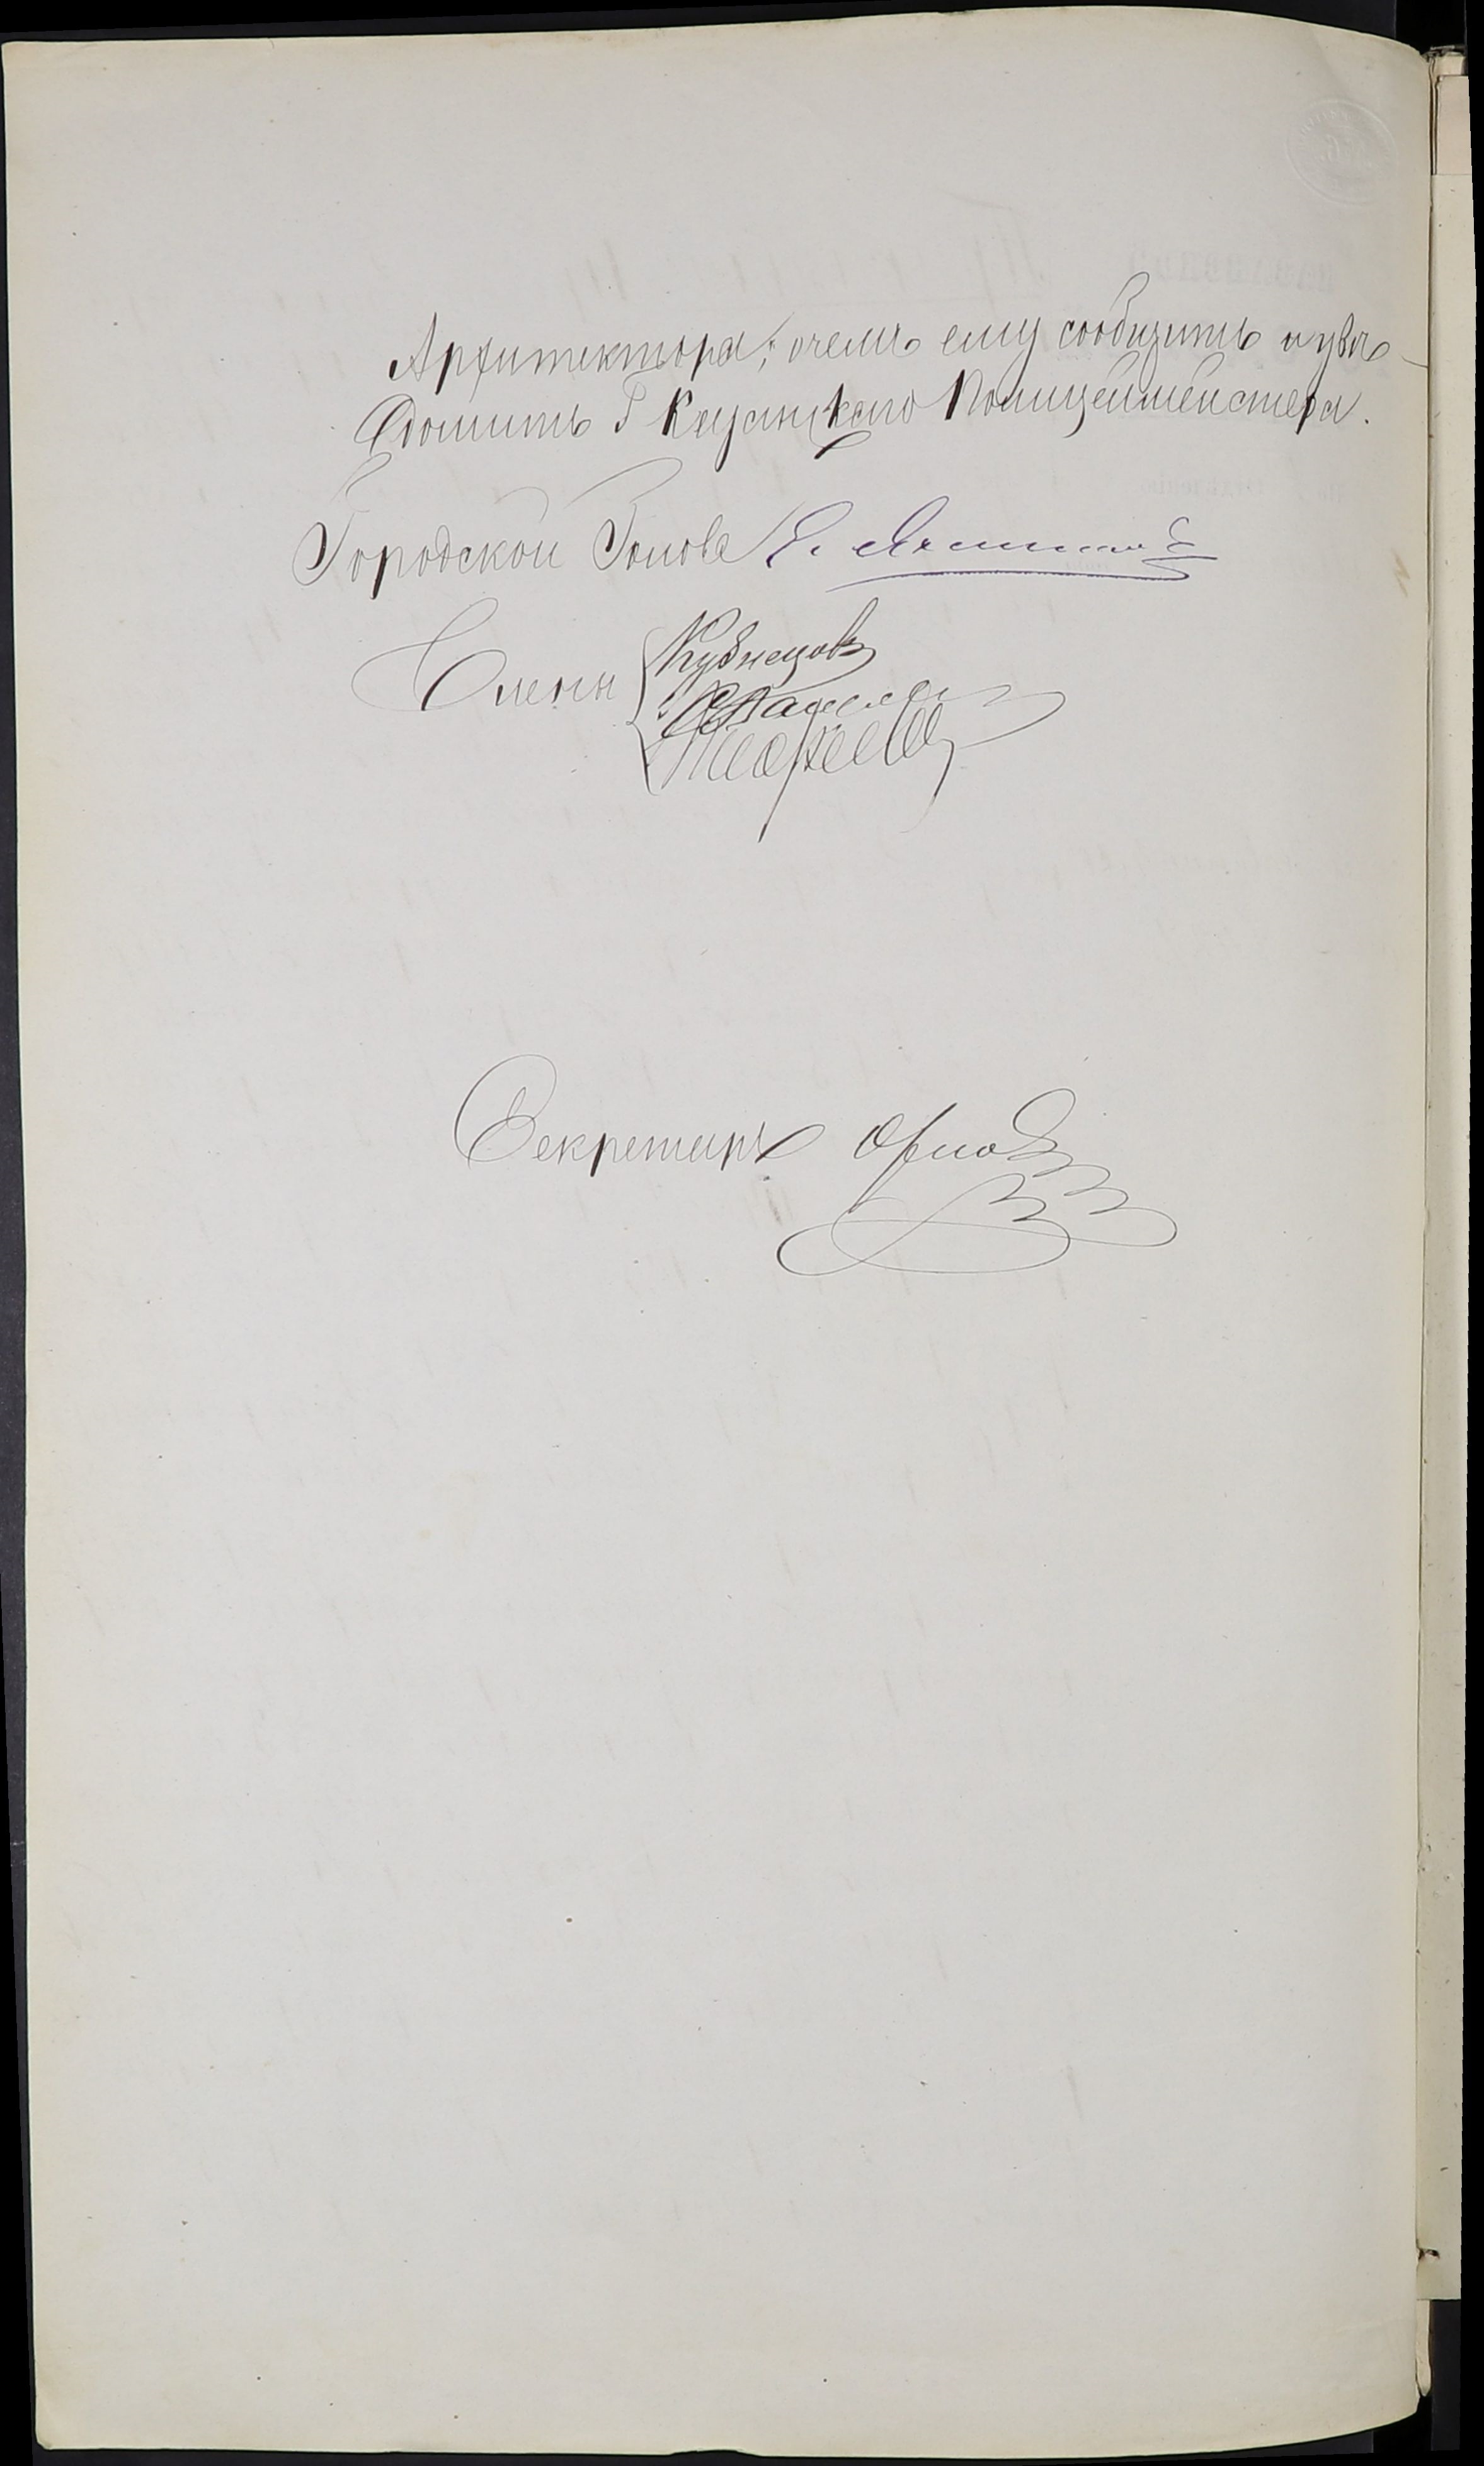 Архитектора; о чемъ ему сообщить и увѣ-
домить Г Казанскаго Полицеймейстера.
Городской Голова Э. Янишевскій
Члены
Кузнецовъ
Секретарь Орловъ